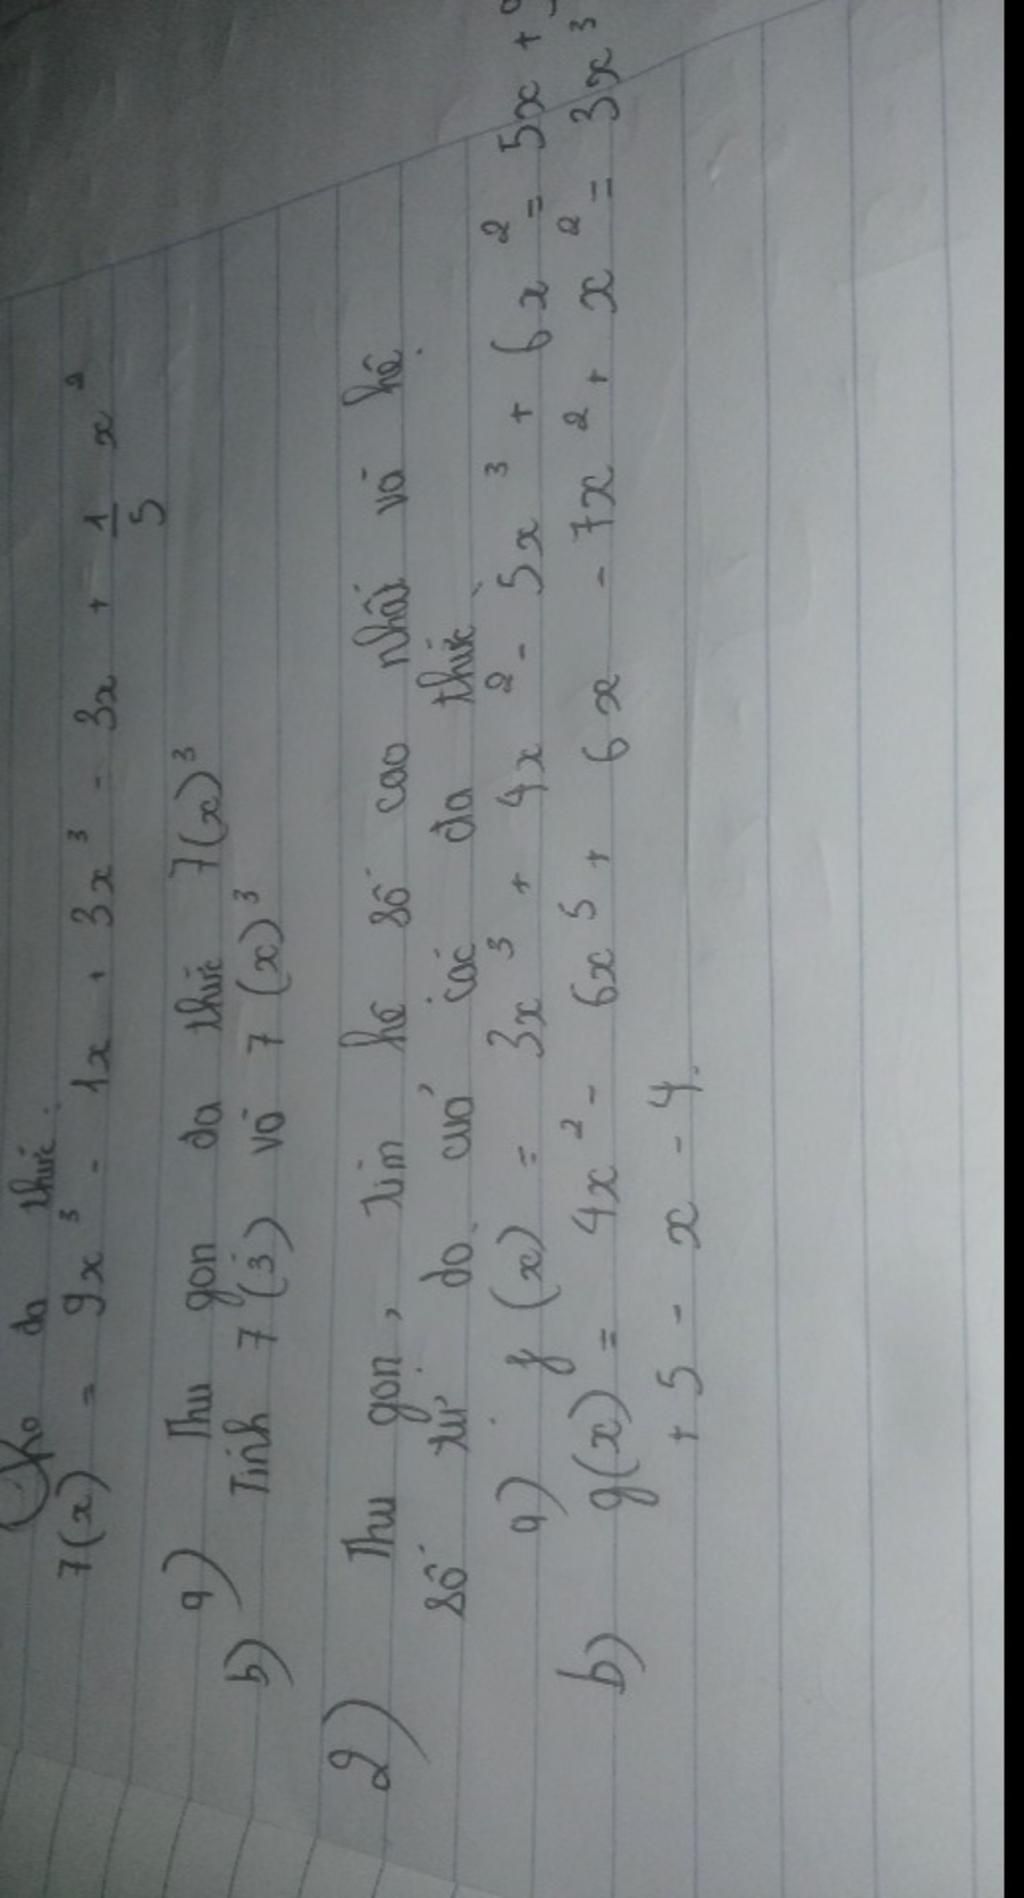 Cho đa thức:
7(x) = 9x³ - 1x + 3x³ - 3x + 1/5 x²
a) Thu gọn đa thức 7(x)³
b) Tính 7(3) và 7(x)³
2) Thu gọn, tìm hê số cao nhất và hê
số tự do của các đa thức
a) f(x) = 3x³ + 4x² - 5x³ + 6x² = 5x +
b) g(x) = 4x² - 6x⁵ + 6x - 7x² + x² = 3x³
+ 5 - x - 4.